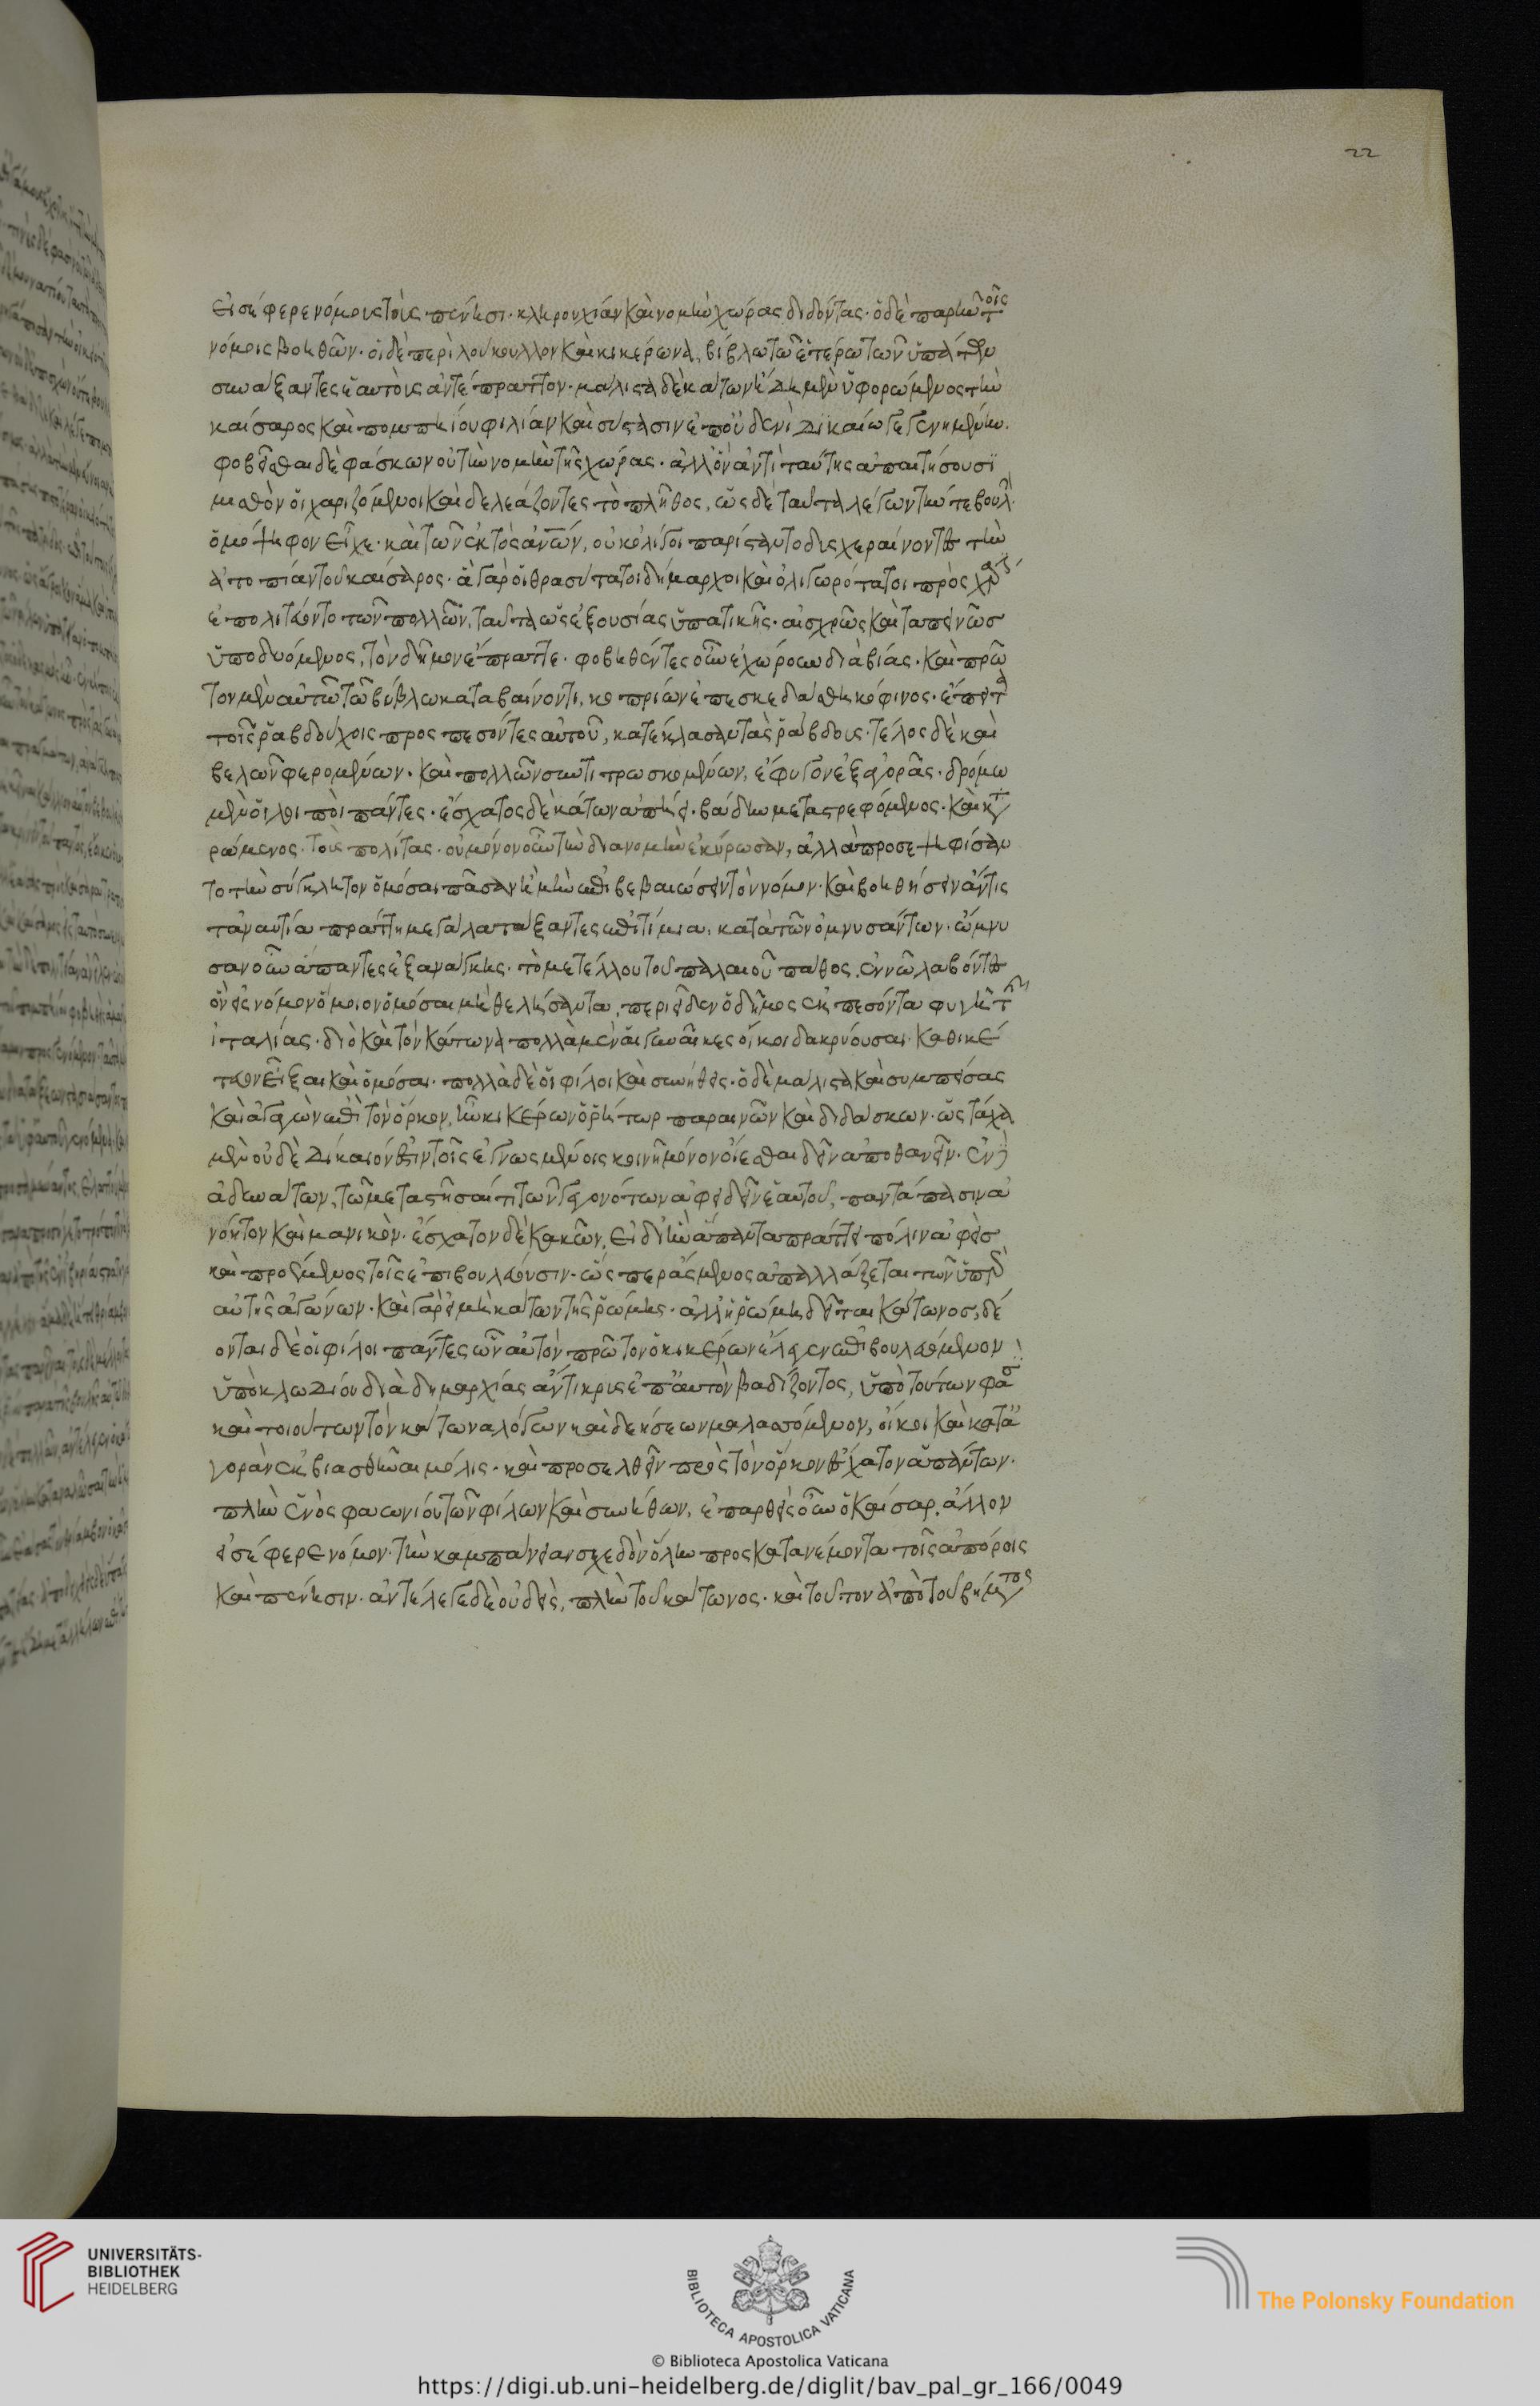 22
εἰσέφερε νόμους τοῖς πένησι· κληρουχίαν καὶ νομὴν χώρας διδόντας· ὁ δὲ παρῆν τοῖς
νόμοις βοηθῶν· οἱ δὲ περὶ λούκουλλον καὶ κικέρωνα, βίβλῳ τῷ ἑτέρῳ τῶν ὑπάτων
συνάξαντες ἑαυτοὺς ἀντέπραττον· μάλιστα δὲ κάτων ἤδη μὲν ὑφορώμενος τὴν
καίσαρος καὶ πομπηίου φιλίαν καὶ σύστασιν ἐπ' οὐδενὶ δικαίῳ γεγενημένην.
φοβεῖσθαι δὲ φάσκων οὐ τὴν νομὴν τῆς χώρας· ἀλλ' ὃν ἀντὶ ταύτης ἀπαιτήσουσι
μισθὸν οἱ χαριζόμενοι καὶ δελεάζοντες τὸ πλῆθος, ὡς δὲ ταῦτα λέγων τήν τε βουλ
ὁμόψηφον εἶχε· καὶ τῶν ἐκτὸς ἀνῶν, οὐκ ὀλίγοι παρίσταντο δυσχεραίνοντες τὴν
ἀτοπίαν τοῦ καίσαρος· ἃ γὰρ οἱ θρασύτατοι δήμαρχοι καὶ ὀλιγωρότατοι πρὸς χάριν
ἐπολιτεύοντο τῶν πολλῶν, ταῦτα ὡς ἐξουσίας ὑπατικῆς· αἰσχρῶς καὶ ταπεινῶς
ὑποδυόμενος, τὸν δῆμον ἔπραττε· φοβηθέντες οὖν ἐχώρουν διὰ βίας· καὶ πρῶ
τον μὲν αὐτῷ τῷ βύβλῳ καταβαίνοντι, κοπρίων ἐπεσκεδάσθη κόφινος· ἔπειτα
τοῖς ῥαβδούχοις προσπεσόντες αὐτοῦ, κατέκλασαν τὰς ῥάβδους· τέλος δὲ καὶ
βελῶν φερομένων· καὶ πολλῶν συντιτρωσκομένων, ἔφυγον ἐξ ἀγορᾶς· δρόμῳ
μὲν οἱ λοιποὶ πάντες· ἔσχατος δὲ κάτων ἀπῄει· βάδην μεταστρεφόμενος· καὶ κατα
ρώμενος· τοῖς πολίτας· οὐ μόνον οὖν τὴν διανομὴν ἐκύρωσαν, ἀλλὰ προσεψηφίσαν
το τὴν σύγκλητον ὀμόσαι πᾶσαν ἦ μὴν ἐπιβεβαιώσειν τὸν νόμον· καὶ βοηθήσειν ἄντις
τἀναντία πράττῃ μεγάλα τάξαντες ἐπιτίμια, κατὰ τῶν ὀμνυσάντων· ὤμνυ
σαν οὖν ἅπαντες ἐξ ἀνάγκης· τὸ μετέλλου τοῦ παλαιοῦ πάθος ἐν νῷ λαβόντες
ὃν εἰς νόμον ὅμοιον ὀμόσαι μὴ θελήσαντα, περιεῖδεν ὁ δῆμος ἐκπεσόντα φυγῇ τῆς
ἰταλίας· διὸ καὶ τὸν κάτωνα πολλὰ μὲν αἱ γυναῖκες οἴκοι δακρύουσαι· καθικέ
τευον εἶξαι καὶ ὀμόσαι· πολλὰ δὲ οἱ φίλοι καὶ συνήθεις· ὁ δὲ μάλιστα καὶ συμπείσας
καὶ ἀγαγὼν ἐπὶ τὸν ὅρκον, ἦν κικέρων ὁ ῥήτωρ παραινῶν καὶ διδάσκων· ὡς τάχα
μὲν οὐδὲ δίκαιόν ἐστιν τοῖς ἐγνωσμένοις κοινῇ μόνον οἴεσθαι δεῖν ἀποθανεῖν· ἐν δὲ
ἀδυνάτῳ, τῷ μεταστῆσαί τι τῶν γεγονότων ἀφειδεῖν ἑαυτοῦ, παντάπασιν ἀ
νόητον καὶ μανικόν· ἔσχατον δὲ κακῶν, εἰ δι' ἣν ἅπαντα πράττει πόλιν ἀφεὶς
καὶ προέμενος τοῖς ἐπιβουλεύουσιν· ὥσπερ ἄσμενος ἀπαλλάξεται τῶν ὑπὲρ
αὐτῆς ἀγώνων· καὶ γὰρ εἰ μὴ κάτων τῆς ῥώμης· ἀλλ' ἡ ῥώμη δεῖται κάτωνος, δέ
ονται δὲ οἱ φίλοι πάντες ὧν αὑτὸν πρῶτον ὁ κικέρων ἔλεγεν ἐπιβουλευόμενον
ὑπὸ κλωδίου διὰ δημαρχίας ἄντικρις ἐπ' αὐτὸν βαδίζοντος, ὑπὸ τούτων φασὶ
καὶ τοιούτων τὸν κάτωνα λόγων καὶ δεήσεων μαλασσόμενον, οἴκοι καὶ κατ' ἀ
γορὰν ἐκβιασθῆναι μόλις· καὶ προσελθεῖν πρὸς τὸν ὅρκον ἔσχατον ἁπάντων·
πλὴν ἑνὸς φαωνίου τῶν φίλων καὶ συνήθων, ἐπαρθεὶς οὖν ὁ καίσαρ, ἄλλον
εἰσέφερε νόμον· τὴν καμπανείαν σχεδὸν ὅλην προσκατανέμοντα τοῖς ἀπόροις
καὶ πένησιν· ἀντέλεγε δὲ οὐδεὶς, πλὴν τοῦ κάτωνος· καὶ τοῦτον ἀπὸ τοῦ βήματος
UNIVERSITÄTS-
BIBLIOTHEK
HEIDELBERG
BIBLIOTECA APOSTOLICA VATICANA
The Polonsky Foundation
© Biblioteca Apostolica Vaticana
https://digi.ub.uni-heidelberg.de/diglit/bav_pal_gr_166/0049